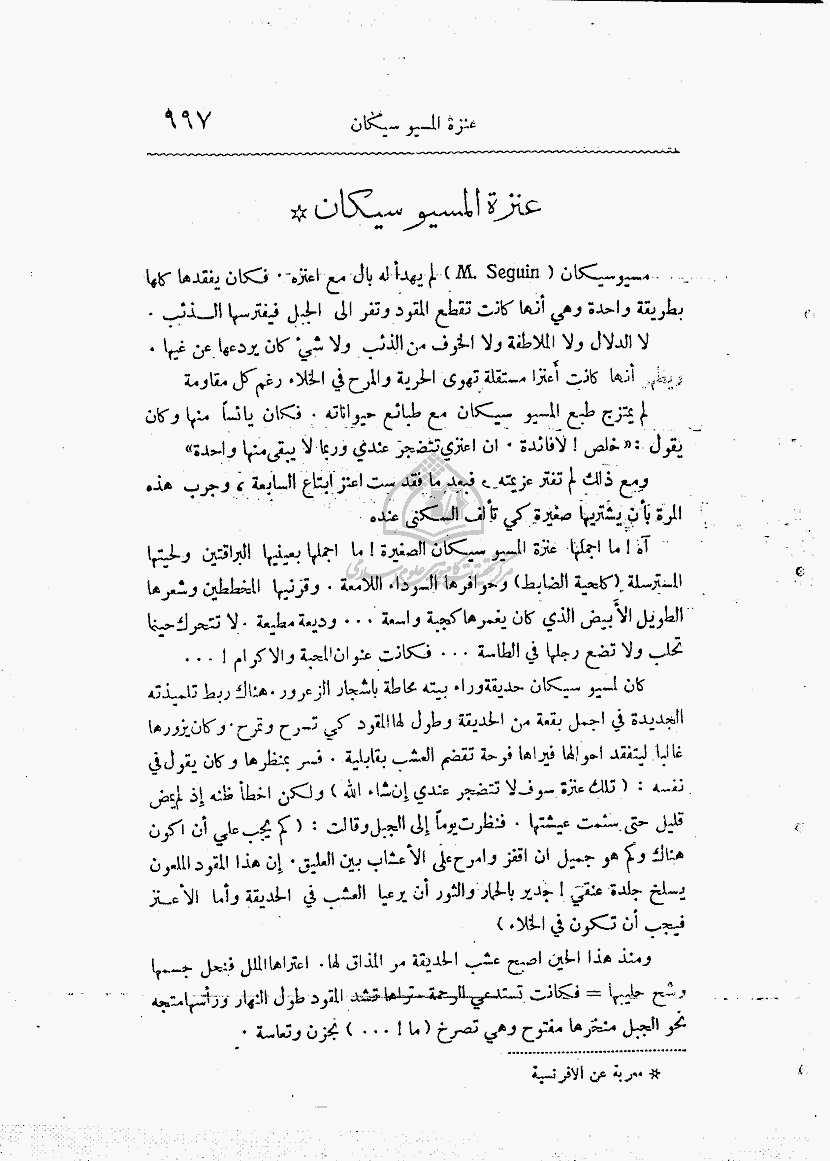 عنزة المسيو سيكان ٩٩٧
عنزة المسيو سيكان *
مسيوسيكان ( M. Seguin ) لم يهدأ له بال مع اعتزه . فكان يفقدها كلها
بطريقة واحدة وهي أنها كانت تقطع المقود وتفر الى الجبل فيفترسها الذئب .
لا الدلال ولا الملاطفة ولا الخوف من الذئب ولا شيٌ كان يردعها عن غيها .
ويظهر أنها كانت أعنزا مستقلة تهوى الحرية والمرح في الخلاء رغم كل مقاومة
لم يمتزج طبع المسيو سيكان مع طبائع حيواناته . فكان يائساً منها وكان
يقول : «خلص ! لافائدة . ان اعنزي تتضجر عندي وربما لا يبقى منها واحدة»
ومع ذلك لم تفتر عزيمته . فبعد ما فقد ست اعنز ابتاع السابعة ، وجرب هذه
المرة بأن يشتريها صغيرة كي تألف السكنى عنده
آه ! ما اجملها عنزة المسيو سيكان الصغيرة ! ما اجملها بعينيها البراقتين ولحيتها
المسترسلة (كلحية الضابط) وحوافرها السوداء اللامعة . وقرنيها المخططين وشعرها
الطويل الأبيض الذي كان يغمرها كجبة واسعة ... وديعة مطيعة . لا تتحرك حينما
تحلب ولا تضع رجلها في الطاسة ... فكانت عنوان المحبة والاكرام ! ...
كان لمسيو سيكان حديقة وراء بيته محاطة باشجار الزعرور . هناك ربط تلميذته
الجديدة في اجمل بقعة من الحديقة وطول لها المقود كي تسرح وتمرح . وكان يزورها
غالبا ليتفقد احوالها فيراها فرحة تقضم العشب بقابلية . فسر بمنظرها وكان يقول في
نفسه : ( تلك عنزة سوف لا تتضجر عندي إن شاء الله ) ولكن اخطأ ظنه إذ لم يمض
قليل حتى سئمت عيشتها . فنظرت يوماً إلى الجبل وقالت : ( كم يجب علي أن اكون
هناك وكم هو جميل ان اقفز وامرح على الأعشاب بين العليق . إن هذا المقود الملعون
يسلخ جلدة عنقي ! جدير بالحمار والثور أن يرعيا العشب في الحديقة وأما الأعنز
فيجب أن تكون في الخلاء )
ومنذ هذا الحين اصبح عشب الحديقة مر المذاق لها . اعتراها الملل فنحل جسمها
وشح حليبها = فكانت تستدعي الرحمة ستراها تشد المقود طول النهار ورأسها متجه
نحو الجبل منخرها مفتوح وهي تصرخ ( ما ! ... ) بحزن وتعاسة .
* معربة عن الافرنسية